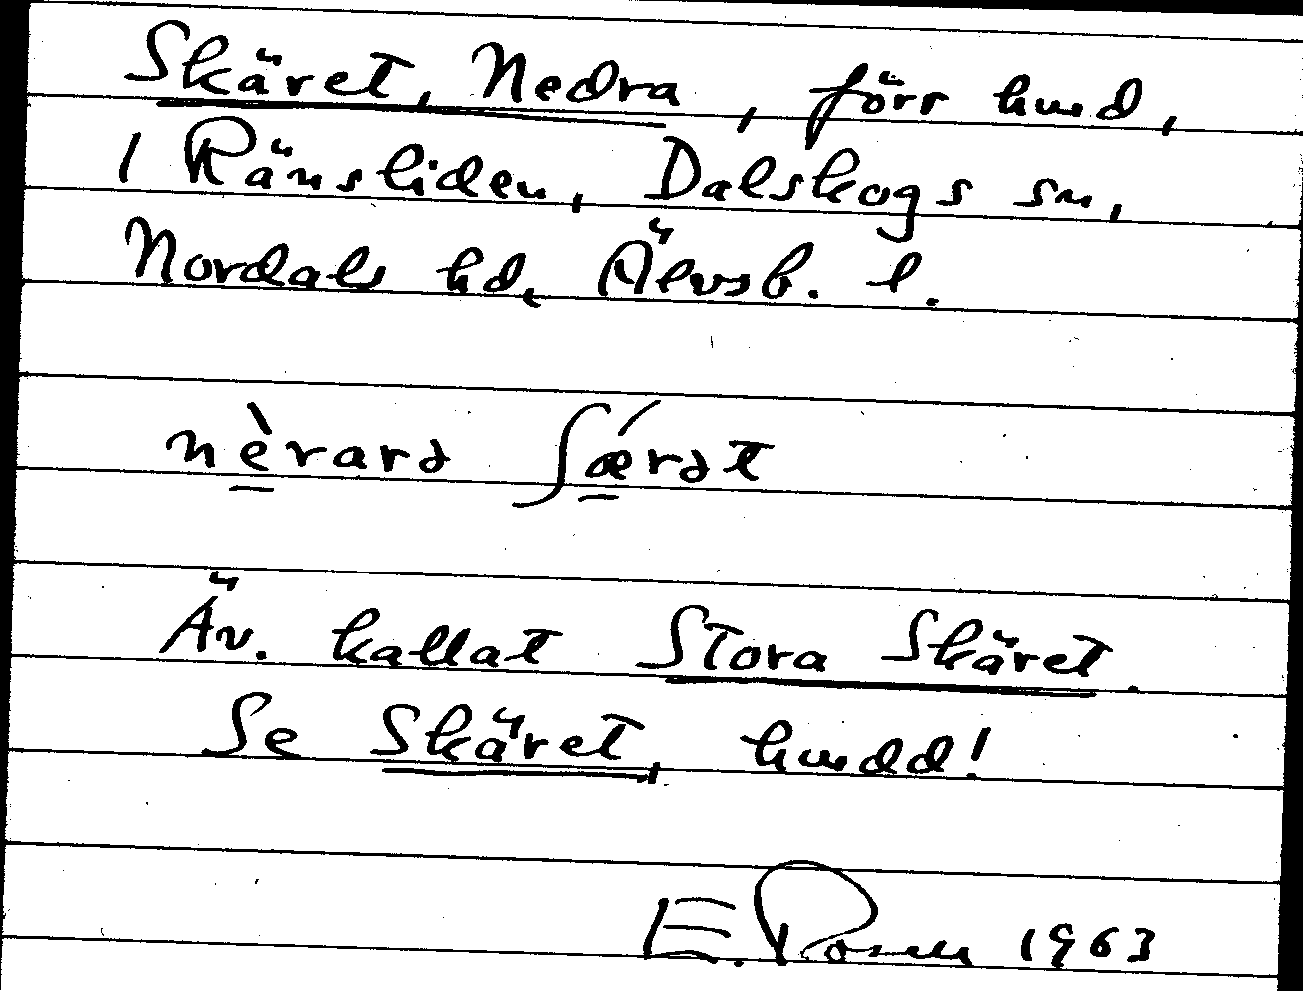 Skäret, Nedra, förr hmd,
1 Ränsliden, Dalskogs sn,
Nordals hd, Älvsb. l.
nèrarə ʃǽrət
Äv. kallat Stora Skäret.
Se Skäret, hmdd!
E. Rosen 1963